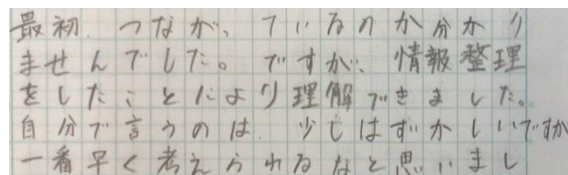 最初、つながっているのか分かり
ませんでした。ですが、情報整理
をしたことにより理解できました。
自分で言うのは、少しはずかしいですが
一番早く考えられるなと思いまし